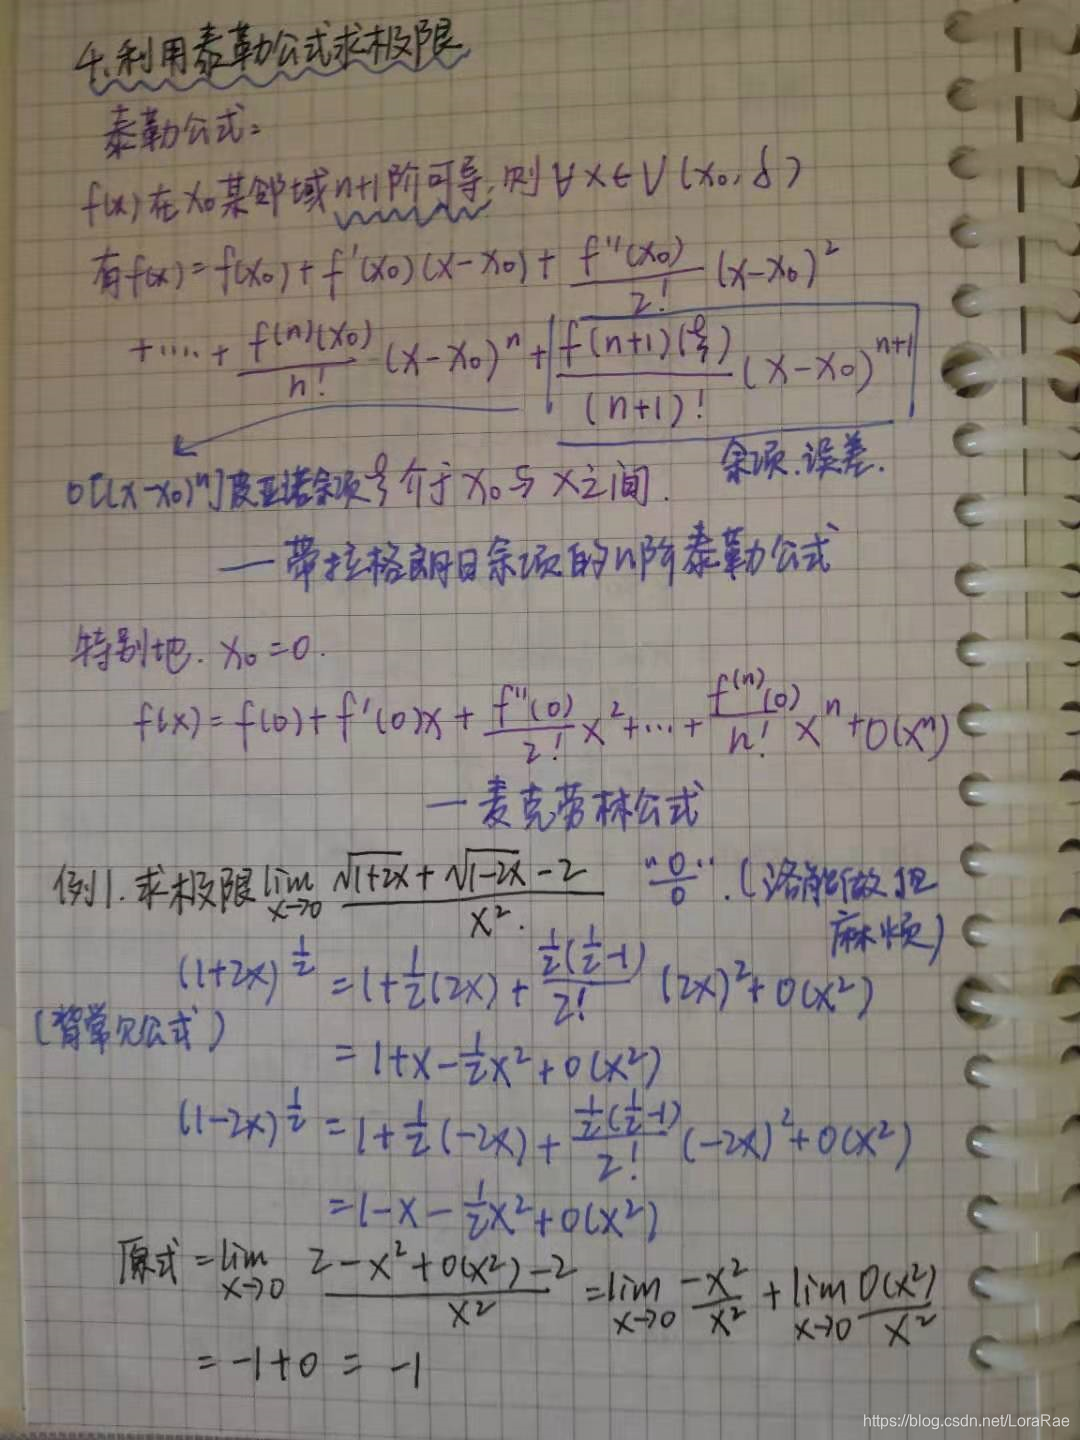 4.利用泰勒公式求极限
泰勒公式:
f(x)在x₀某邻域n+1阶可导,则∀x∈V(x₀,δ)
有f(x)=f(x₀)+f'(x₀)(x-x₀)+ f''(x₀)/2! (x-x₀)²
+····+ f(n)(x₀)/n! (x-x₀)ⁿ+ f(n+1)(ξ)/(n+1)! (x-x₀)ⁿ⁺¹
余项.误差.
o[(x-x₀)ⁿ]皮亚诺余项 ξ介于x₀与x之间.
—带拉格朗日余项的n阶泰勒公式
特别地. x₀=0.
f(x)=f(0)+f'(0)x+ f''(0)/2! x²+···+ f⁽ⁿ⁾(0)/n! xⁿ+o(xⁿ)
—麦克劳林公式
例1.求极限 lim x→0 (√1+2x+√1-2x-2)/x². "0/0".(洛能做但
麻烦)
(1+2x)^½ =1+½(2x)+ ½(½-1)/2! (2x)²+o(x²)
(背常见公式) =1+x-½x²+o(x²)
(1-2x)^½ =1+½(-2x)+ ½(½-1)/2! (-2x)²+o(x²)
=1-x-½x²+o(x²)
原式=lim x→0 (2-x²+o(x²)-2)/x² =lim x→0 -x²/x² +lim x→0 o(x²)/x²
=-1+0=-1
https://blog.csdn.net/LoraRae